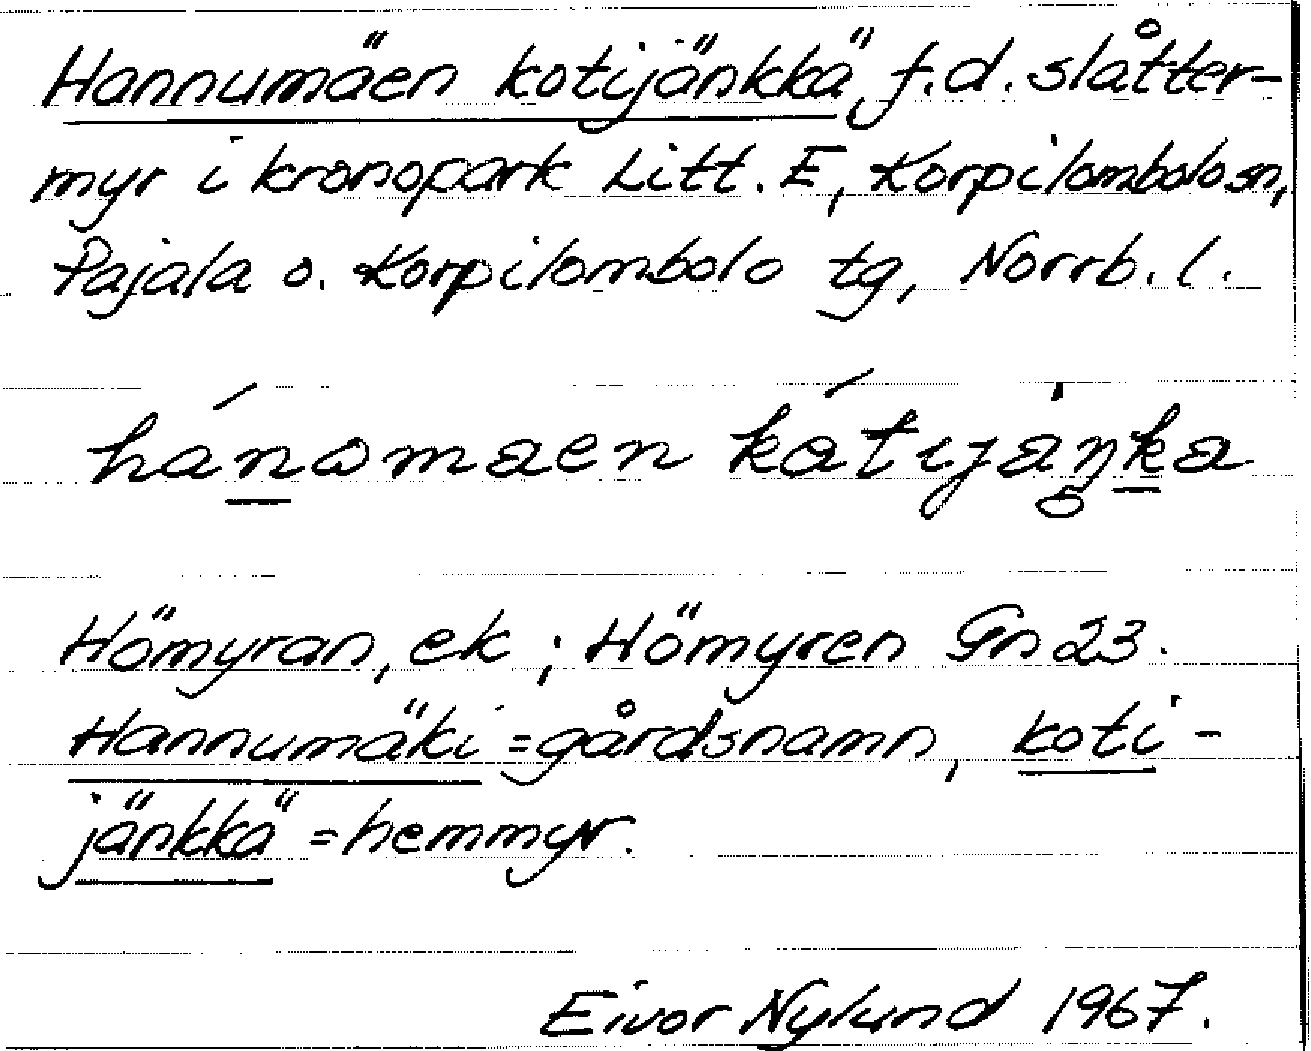 Hannumäen kotijänkkä, f.d. slåtter-
myr i kronopark Litt. E, Korpilombolo sn,
Pajala o. Korpilombolo tg, Norrb. l.
hánωmaen kåtɩjaŋka
Hömyran, ek; Hömyren Gn 23.
Hannumäki = gårdsnamn, koti-
jänkkä = hemmyr.
Eivor Nylund 1967.